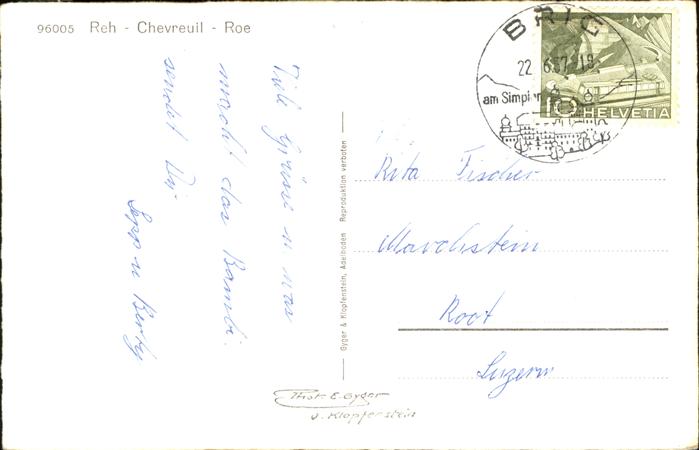 96005 Reh - Chevreuil - Roe
BRIG
22.6.57-18
am Simplon
10 HELVETIA
Viele Grüsse u was
macht das Bambi.
sendet Dir
Sepp u Berty
Gyger & Klopfenstein, Adelboden Reproduktion verboten
Rita Fischer
Marchstein
Root
Luzern
Phot. E. Gyger
u. Klopfenstein